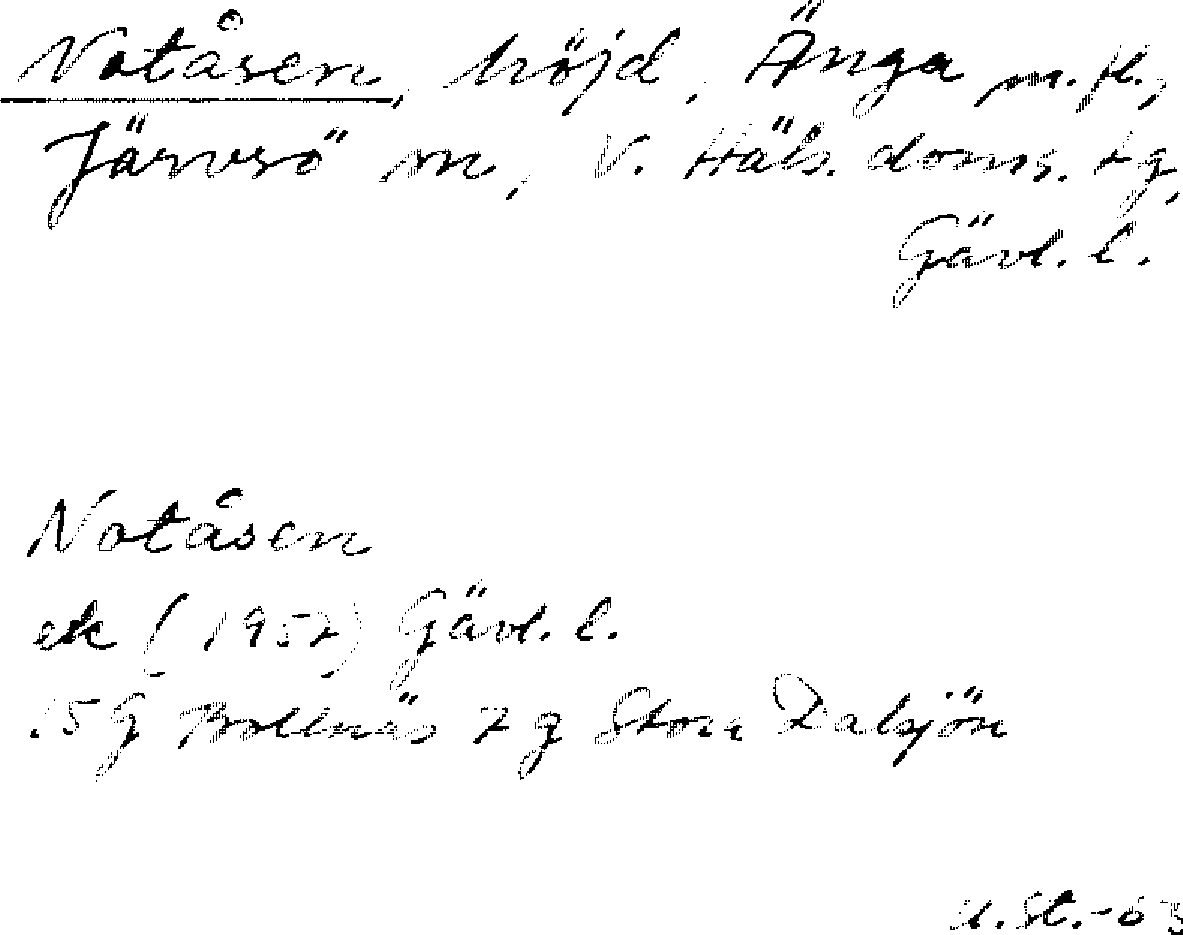 Notåsen, höjd, Änga m.fl.,
Järvsö sn, V. Häls. doms. tg,
Gävl. l.
Notåsen
ek (1957) Gävl. l.
15 G Bollnäs 7 g Stora Dalsjön
U.St.-63